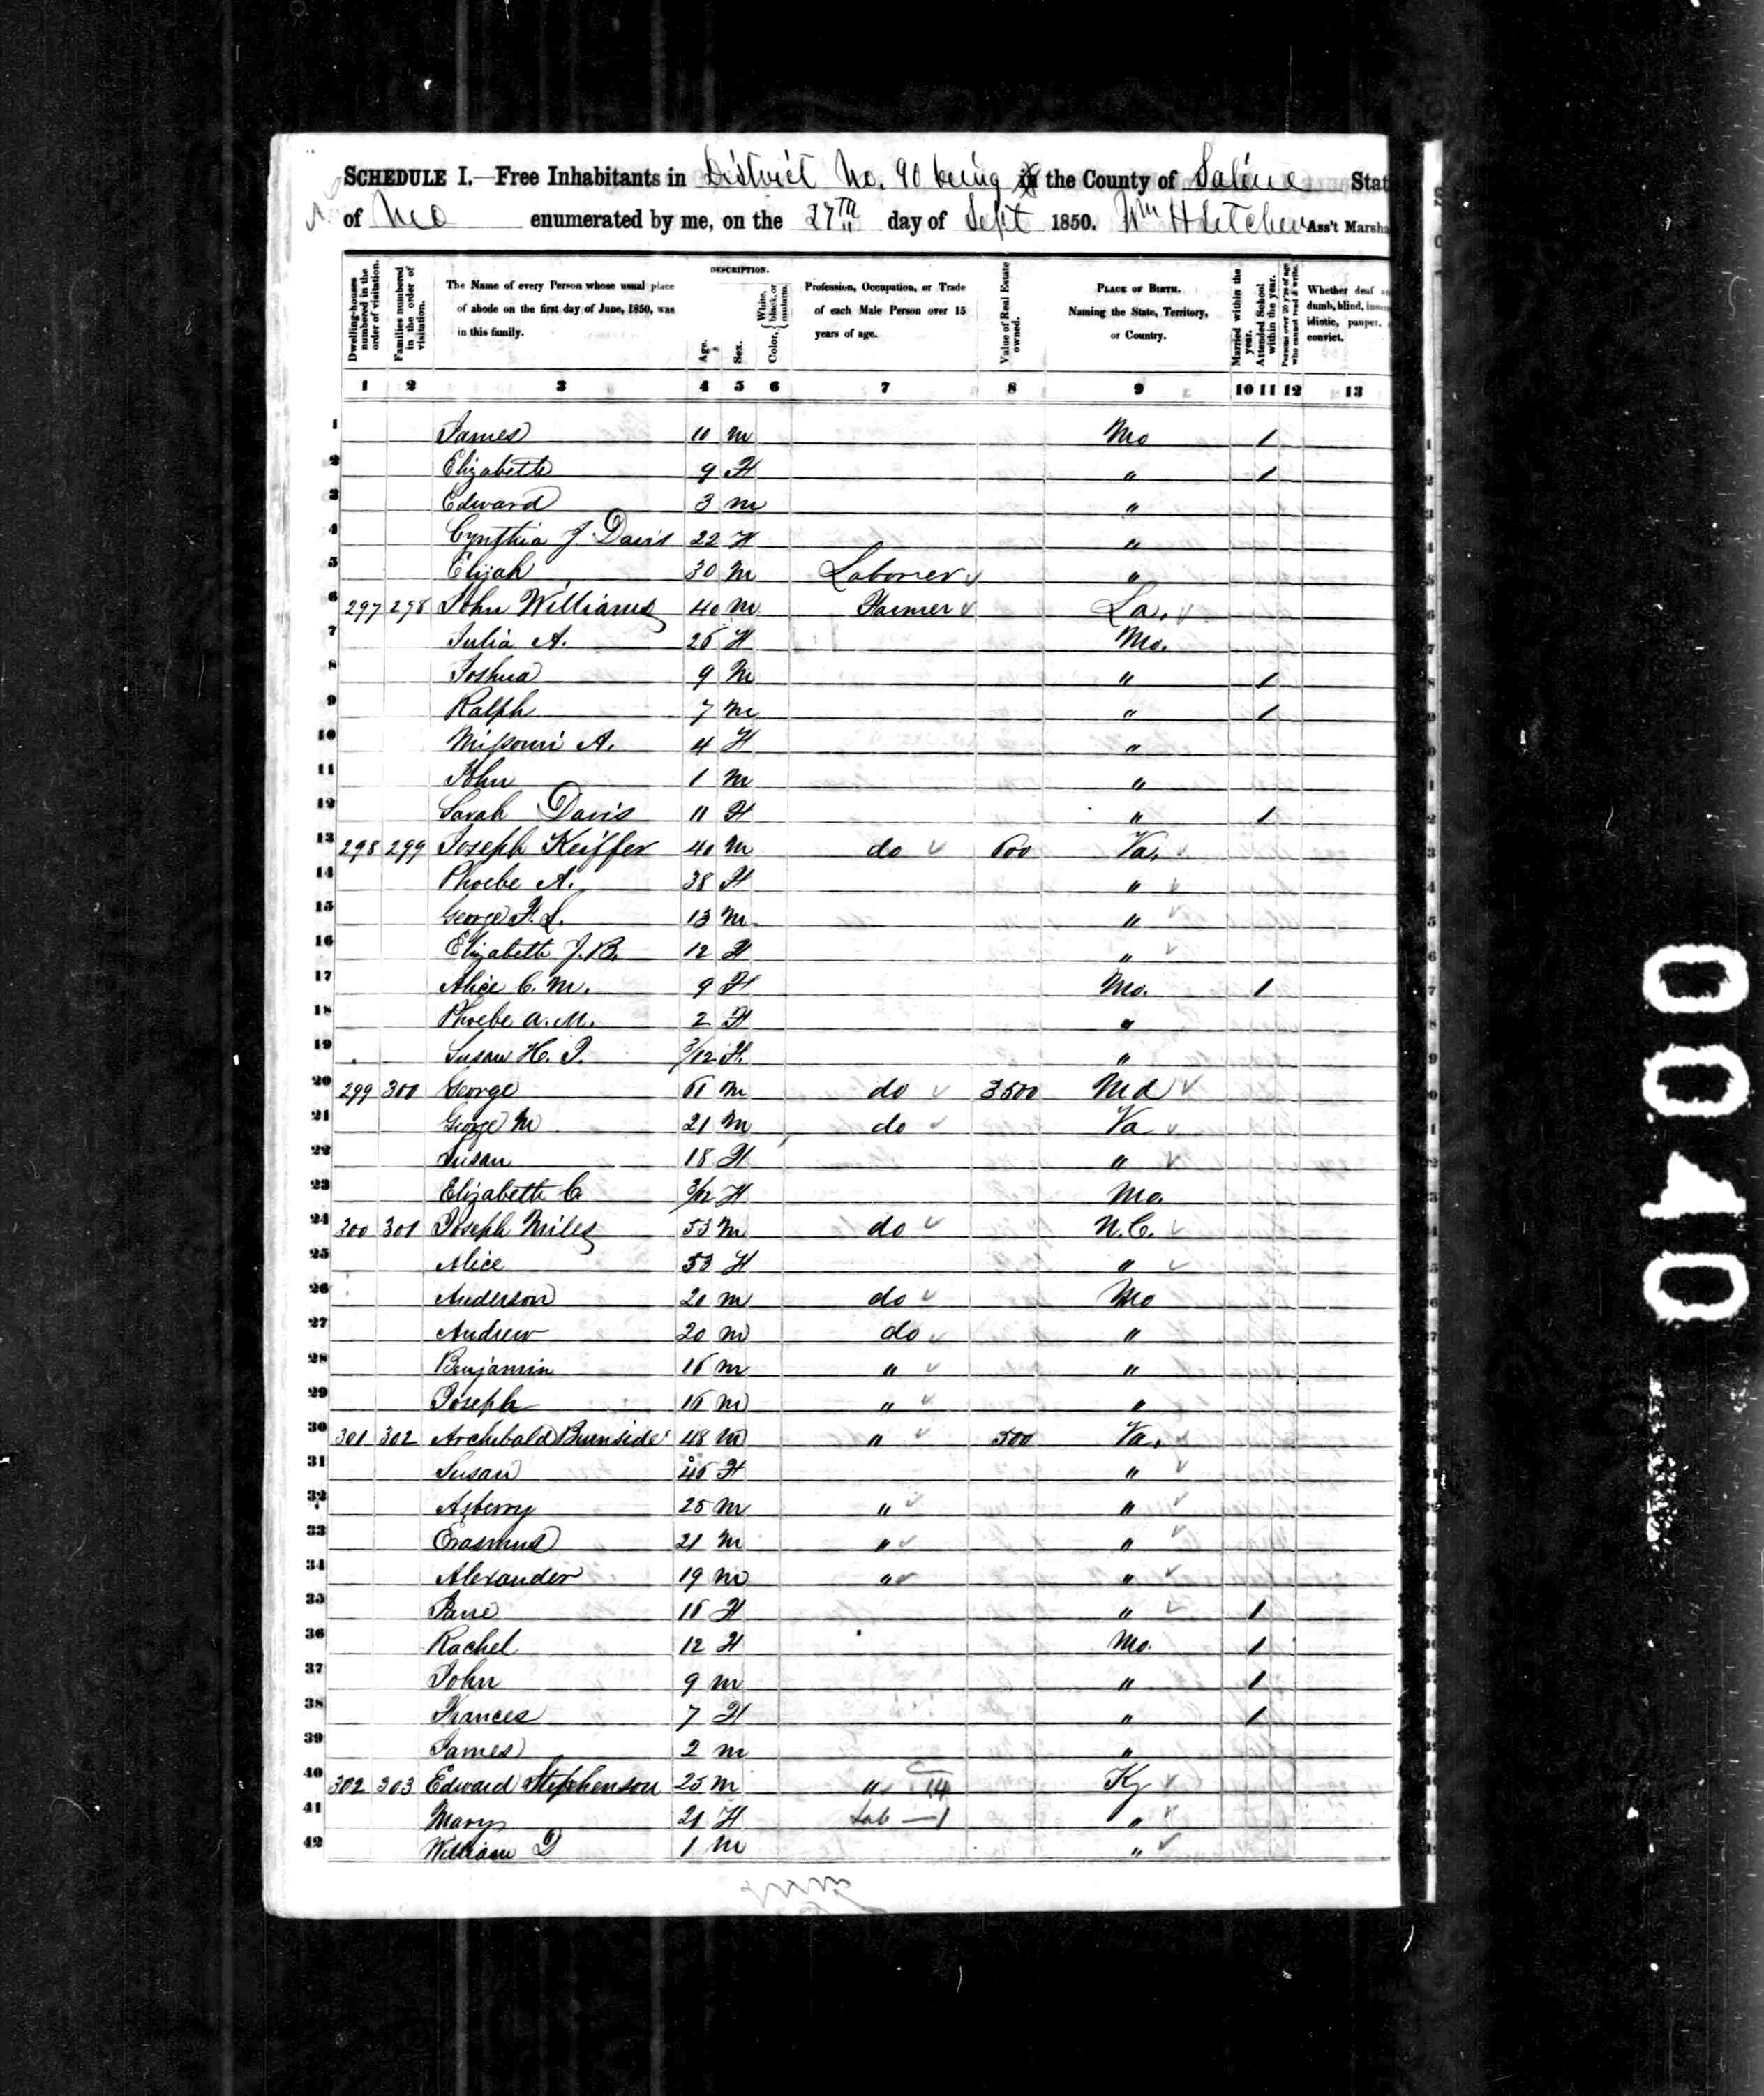 SCHEDULE I.—Free Inhabitants in District No. 90 being in the County of Saline Stat
of Mo enumerated by me, on the 27TH day of Sept 1850. Wm H Letcher Ass't Marsha
Dwelling-houses numbered in the order of visitation.
Families numbered in the order of visitation.
The Name of every Person whose usual place of abode on the first day of June, 1850, was in this family.
DESCRIPTION.
Age.
Sex.
Color, { White, black, or mulatto.
Profession, Occupation, or Trade of each Male Person over 15 years of age.
Value of Real Estate owned.
PLACE OF BIRTH. Naming the State, Territory, or Country.
Married within the year.
Attended School within the year.
Persons over 20 y'rs of age who cannot read & write.
Whether deaf a dumb, blind, insan idiotic, pauper, convict.
1 2 3 4 5 6 7 8 9 10 11 12 13
1 James 10 m Mo 1
2 Elizabeth 9 F " 1
3 Edward 3 m "
4 Cynthia J. Davis 22 F "
5 Elijah 30 m Laborer "
6 297 298 John Williams 40 m Farmer La.
7 Julia A. 26 F Mo.
8 Joshua 9 m " 1
9 Ralph 7 m " 1
10 Missouri A. 4 F "
11 John 1 m "
12 Sarah Davis 11 F " 1
13 298 299 Joseph Keiffer 40 m do 600 Va.
14 Phoebe A. 38 F "
15 George F. L. 13 m "
16 Elizabeth J. B. 12 F "
17 Alice C. M. 9 F Mo. 1
18 Phoebe A. M. 2 F "
19 Susan H. I. 3/12 F. "
20 299 300 George 61 m do 3500 Md
21 George M 21 m do Va
22 Susan 18 F "
23 Elizabeth C 3/12 F Mo.
24 300 301 Joseph Miles 53 m do N.C.
25 Alice 53 F "
26 Anderson 21 m do Mo
27 Andrew 20 m do "
28 Benjamin 16 m " "
29 Joseph 16 m " "
30 301 302 Archibald Burnside 48 m " 500 Va.
31 Susan 46 F "
32 Asberry 25 m " "
33 Erasmus 21 m " "
34 Alexander 19 m " "
35 Jane 16 F " 1
36 Rachel 12 F Mo. 1
37 John 9 m " 1
38 Frances 7 F " 1
39 James 2 m "
40 302 303 Edward Stephenson 25 m " 14 Ky
41 Mary 21 F Lab — 1 "
42 William D 1 m "
0040